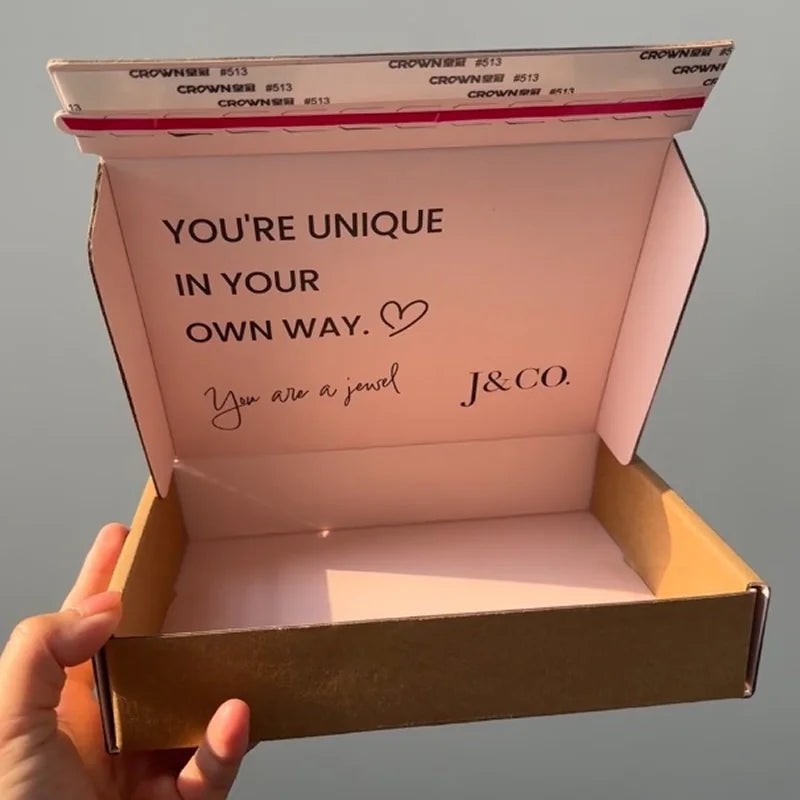 CROWN皇冠 #513 CROWN皇冠 #513 CROWN皇冠 #5
CROWN皇冠 #513 CROWN皇冠 #513 CROWN
CROWN皇冠 #513 CROWN皇冠 #513
13
YOU'RE UNIQUE
IN YOUR
OWN WAY.
You are a jewel
J&CO.